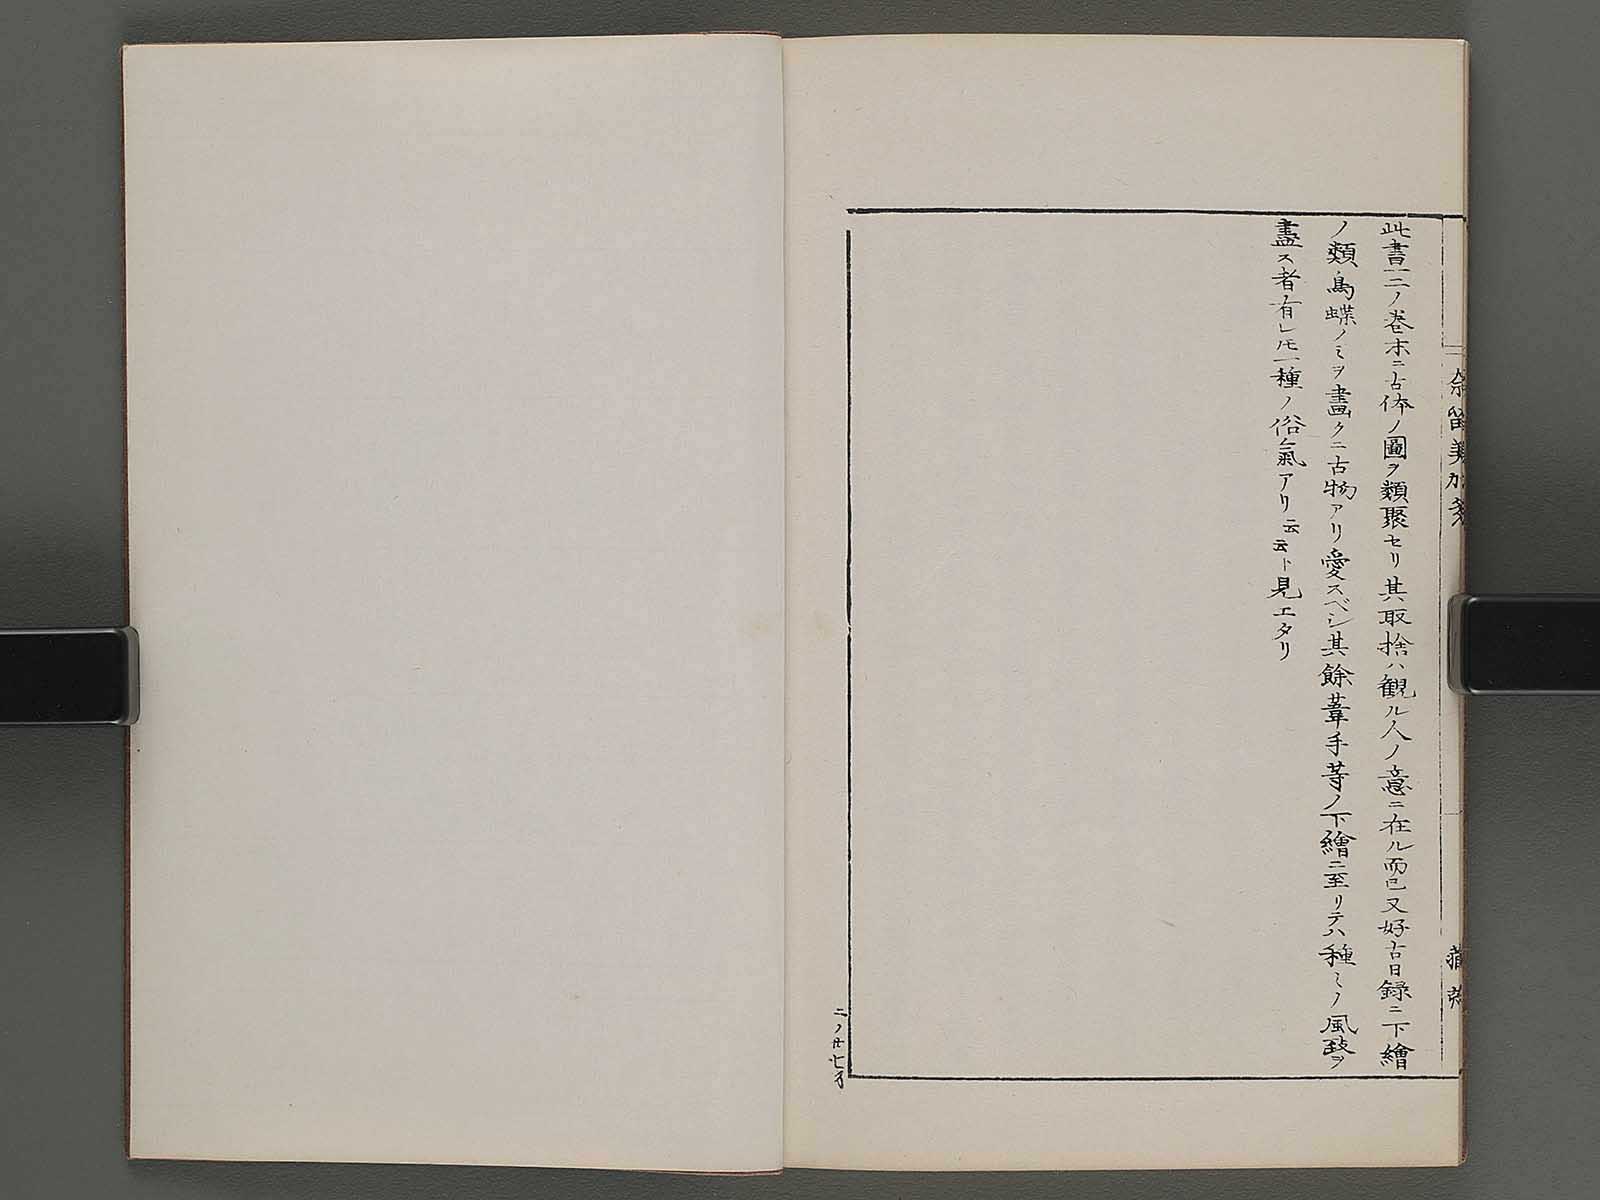 此書一二ノ巻末ニ古体ノ圖ヲ類聚セリ其取捨ハ観ル人ノ意ニ在ル而已又好古日録ニ下繪
ノ類鳥蝶ノミヲ畫クニ古物アリ愛スベシ其餘葦手等ノ下繪ニ至リテハ種〻ノ風致ヲ
盡ス者有レ𪜈一種ノ俗氣アリ云云ト見エタリ
二ノ廿七才